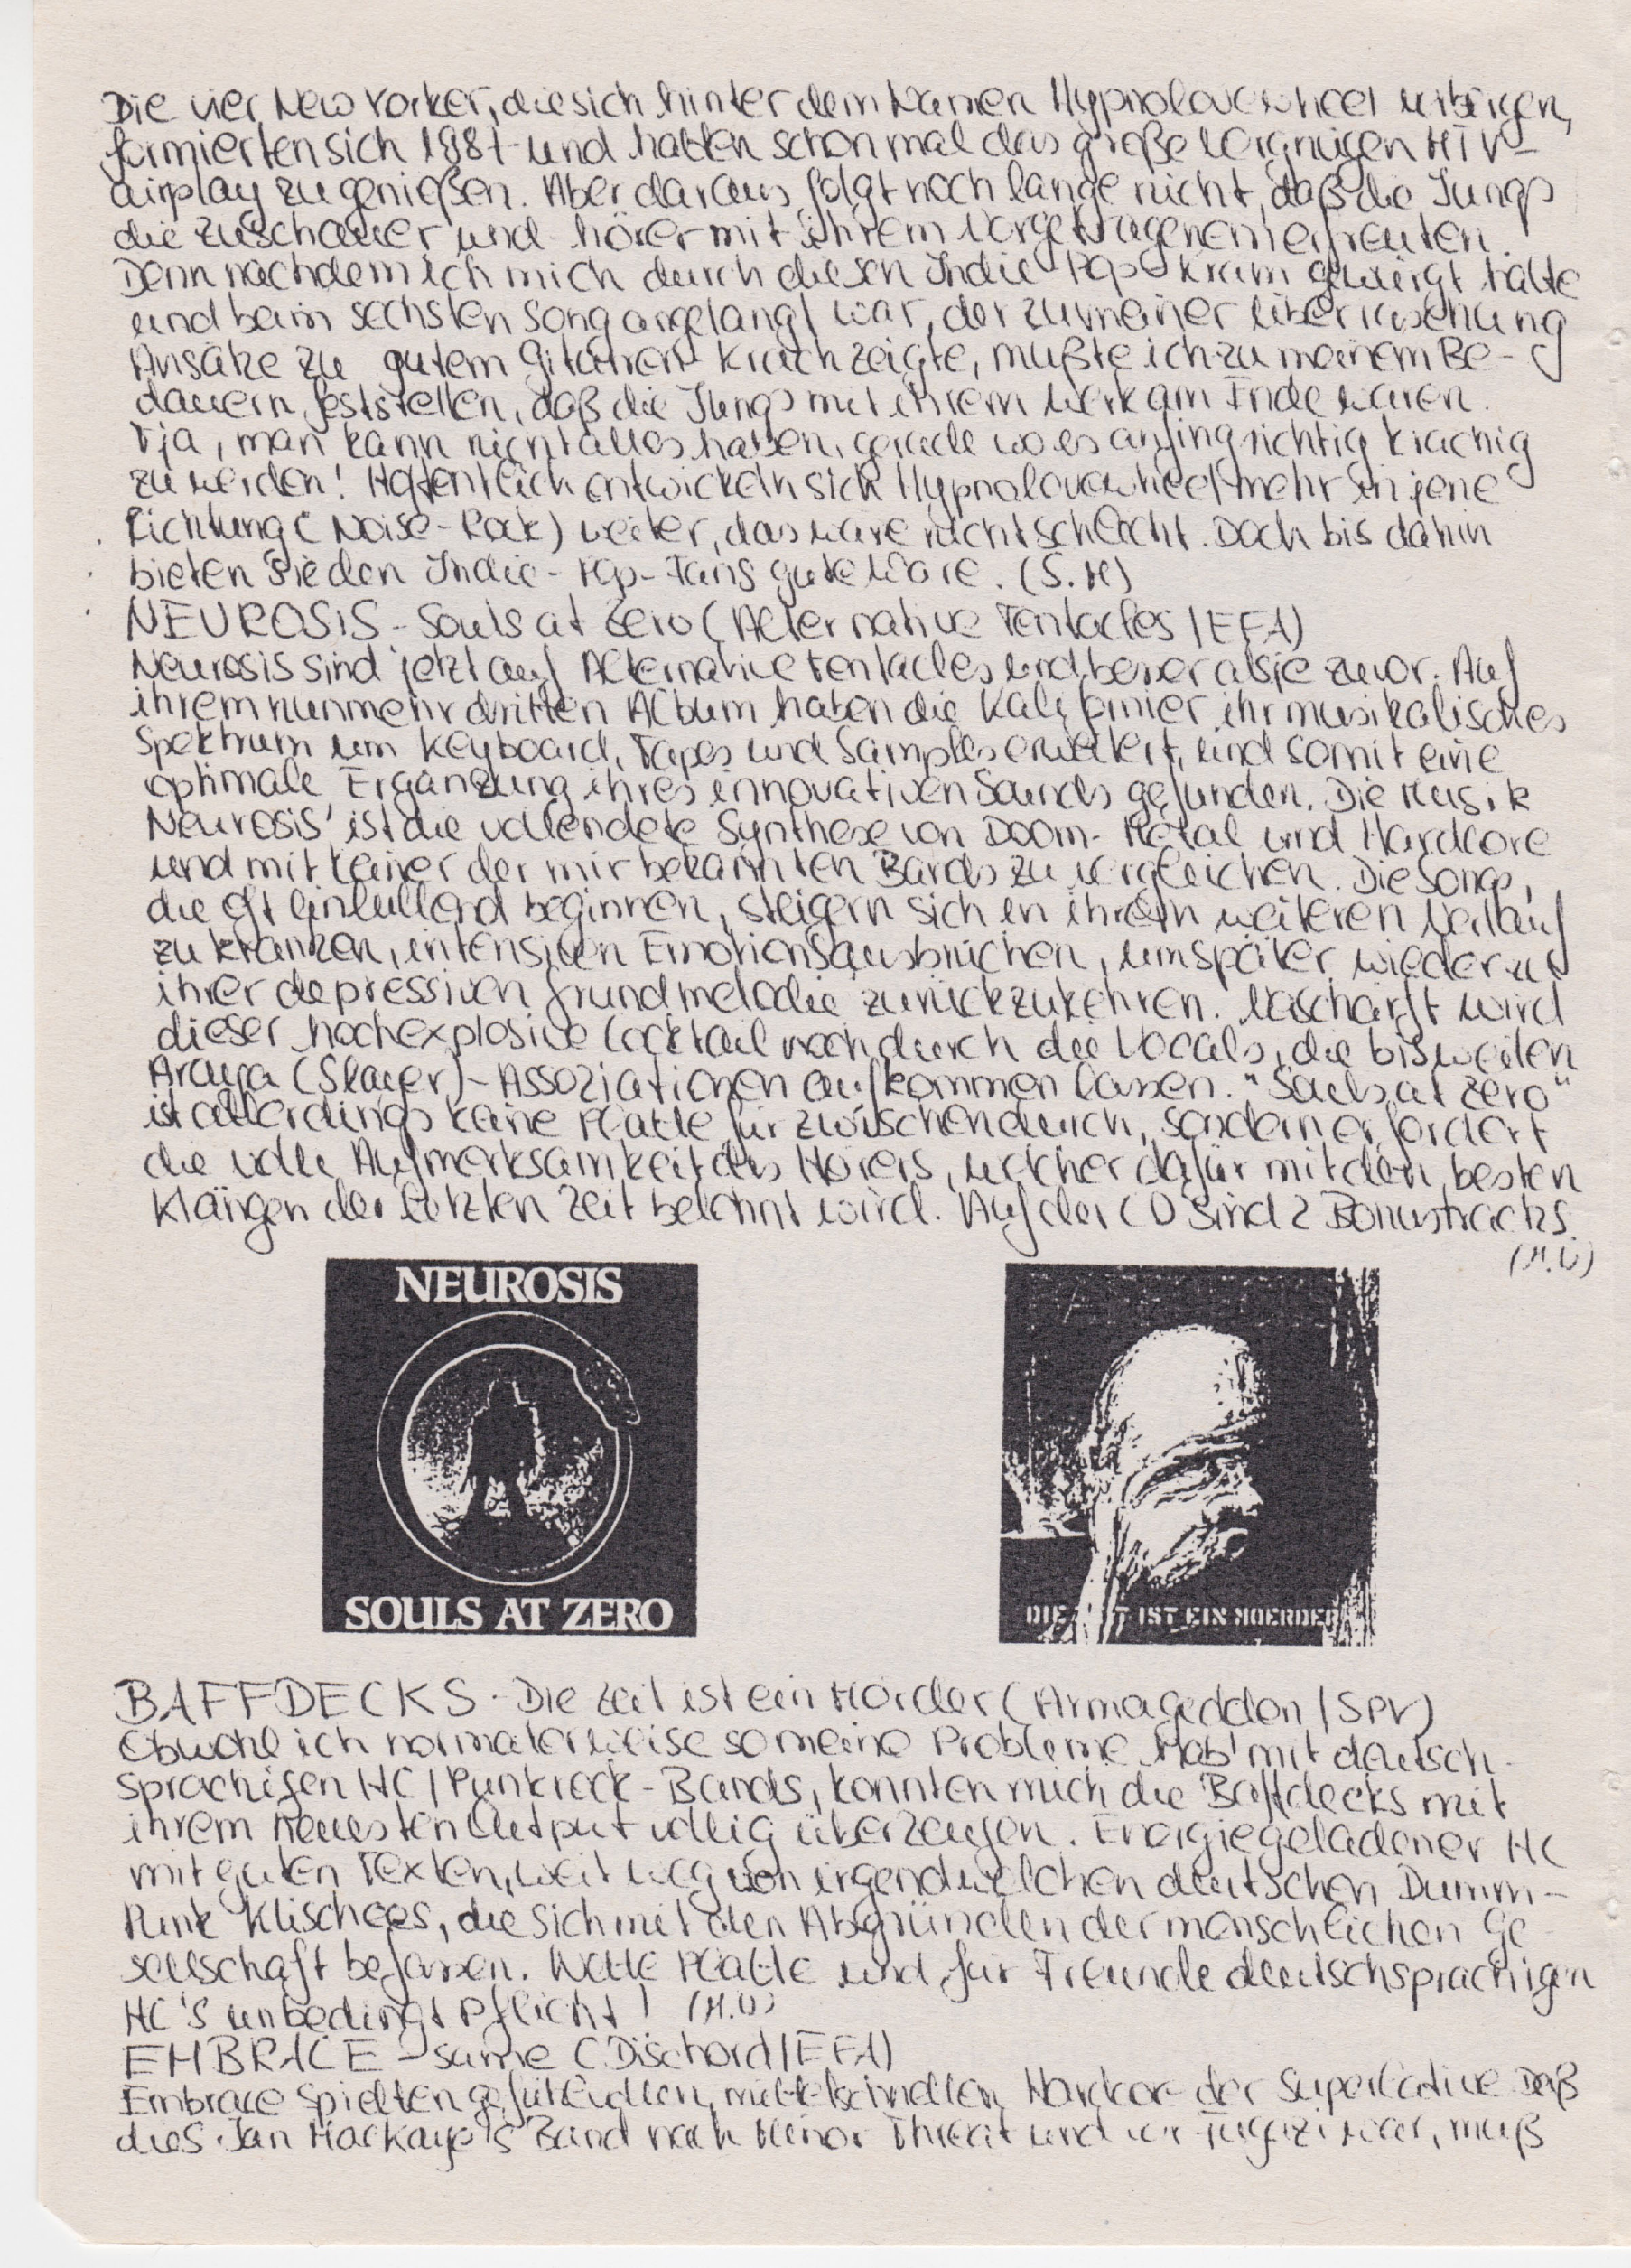 Die vier New Yorker, die sich hinter dem Namen Hypnolovewheel verbergen,
formierten sich 1987 und hatten schon mal das große Vergnügen MTV-
airplay zu genießen. Aber daraus folgt noch lange nicht, daß die Jungs
die Zuschauer und hörer mit ihrem Vorgetragenem erfreuten.
Denn nachdem ich mich durch diesen Indie-Pop-Kram gewürgt hatte
und beim sechsten Song angelangt war, der zu meiner Überraschung
Ansätze zu gutem Gitarren-Krach zeigte, mußte ich zu meinem Be-
dauern feststellen, daß die Jungs mit ihrem Werk am Ende waren.
Tja, man kann nicht alles haben, gerade wo es anfing richtig krachig
zu werden! Hoffentlich entwickeln sich Hypnolovewheel mehr in jene
Richtung (Noise-Rock) weiter, das wäre nicht schlecht. Doch bis dahin
bieten sie den Indie-Pop-Fans gute Ware. (S.M)
NEUROSIS - Souls at Zero (Alternative Tentacles / EFA)
Neurosis sind jetzt auf Alternative Tentacles und besser als je zuvor. Auf
ihrem nunmehr dritten Album haben die Kalifornier ihr musikalisches
Spektrum um Keyboard, Tapes und Samples erweitert, und somit eine
optimale Ergänzung ihres innovativen Sounds gefunden. Die Musik
Neurosis' ist die vollendete Synthese von Doom-Metal und Hardcore
und mit keiner der mir bekannten Bands zu vergleichen. Die Songs,
die oft einlullend beginnen, steigern sich in ihrem weiteren Verlauf
zu kranken, intensiven Emotionsausbrüchen, um später wieder zu
ihrer depressiven Grundmelodie zurückzukehren. Verschärft wird
dieser hochexplosive Cocktail noch durch die Vocals, die bisweilen
Araya (Slayer)-Assoziationen aufkommen lassen. "Souls at Zero"
ist allerdings keine Platte für zwischendurch, sondern erfordert
die volle Aufmerksamkeit des Hörers, welcher dafür mit den besten
Klängen der letzten Zeit belohnt wird. Auf der CD sind 2 Bonustracks.
(M.Ü)
NEUROSIS
SOULS AT ZERO
DIE T IST EIN MOERDER
BAFFDECKS - Die Zeit ist ein Mörder (Armageddon / SPV)
Obwohl ich normalerweise so meine Probleme hab' mit deutsch-
sprachigen HC/Punkrock-Bands, konnten mich die Baffdecks mit
ihrem neuesten Output völlig überzeugen. Energiegeladener HC
mit guten Texten, weit weg von irgendwelchen deutschen Dumm-
Punk Klischees, die sich mit den Abgründen der menschlichen Ge-
sellschaft befassen. Nette Platte und für Freunde deutschsprachigen
HC's unbedingt Pflicht! (M.Ü)
EMBRACE - same (Dischord/EFA)
Embrace spielten gefühlvollen, mittelschnellen Hardcore der Superlative. Daß
dies Ian MacKaye's Band nach Minor Threat und vor Fugazi war, muß